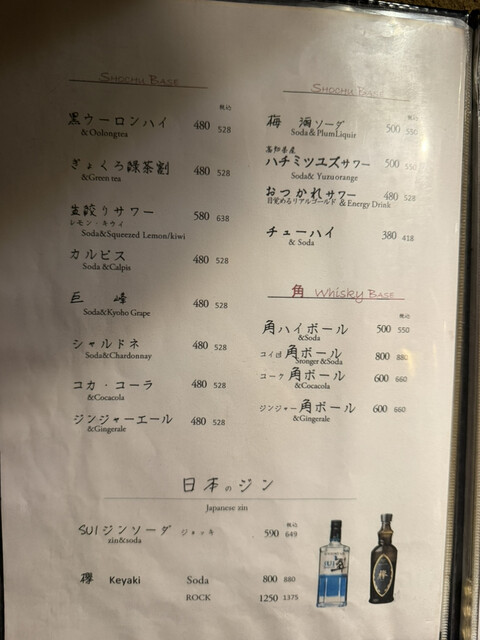 SHOCHU BASE
税込
黒ウーロンハイ 480 528
& Oolongtea
ぎょくろ緑茶割 480 528
&Green tea
生絞りサワー 580 638
レモン・キウイ
Soda&Squeezed Lemon/kiwi
カルピス 480 528
Soda &Calpis
巨 峰 480 528
Soda&Kyoho Grape
シャルドネ 480 528
Soda&Chardonnay
コカ・コーラ 480 528
&Cocacola
ジンジャーエール 480 528
&Gingerale
SHOCHU BASE
税込
梅 酒ソーダ 500 550
Soda&PlumLiquir
高知県産
ハチミツユズサワー 500 550
Soda& Yuzuorange
おつかれサワー 480 528
目覚めるリアルゴールド & Energy Drink
チューハイ 380 418
& Soda
角 Whisky BASE
税込
角ハイボール 500 550
&Soda
コイ目 角ボール 800 880
Sronger&Soda
コーク 角ボール 600 660
&Cocacola
ジンジャー角ボール 600 660
&Gingerale
日本のジン
Japanese zin
税込
SUIジンソーダ ジョッキ 590 649
zin&soda
欅 Keyaki Soda 800 880
ROCK 1250 1375
SUI
翠
欅